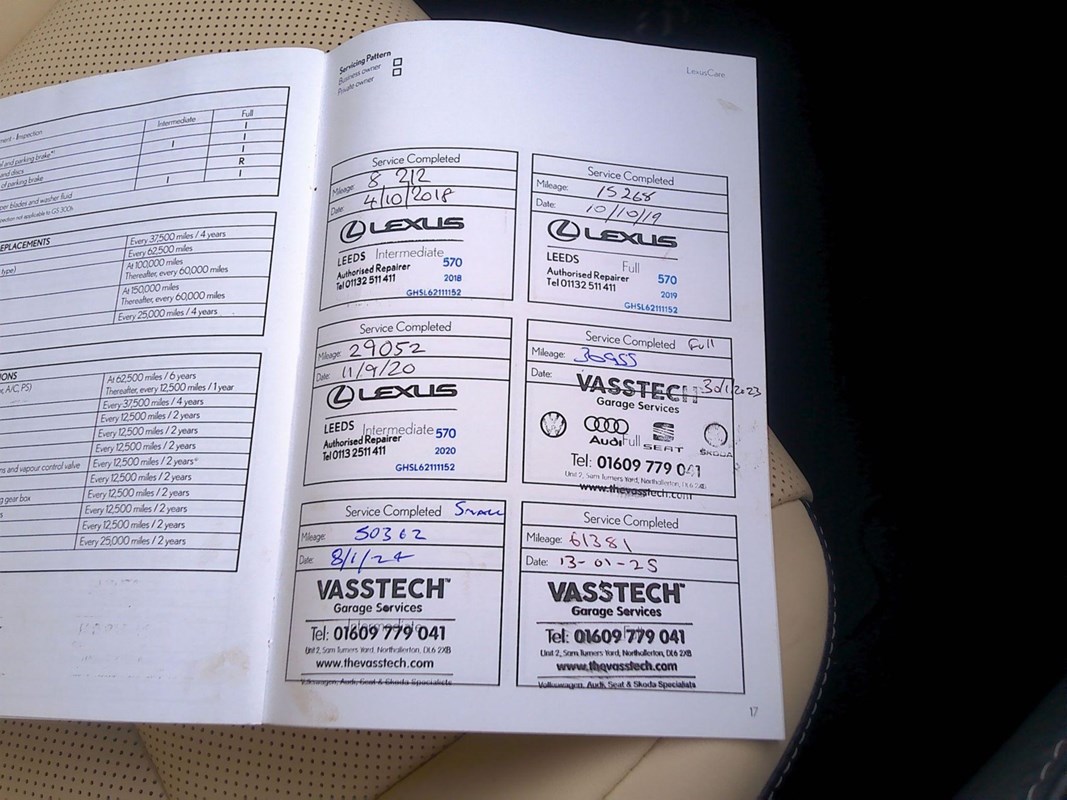 ment - Inspection
Intermediate
Full
I
el and parking brake*¹
I
I
and discs
I
of parking brake
R
I
I
per blades and washer fluid
pection not applicable to GS 300h
EPLACEMENTS
Every 37,500 miles / 4 years
Every 62,500 miles
type)
At 100,000 miles
Thereafter, every 60,000 miles
At 150,000 miles
Thereafter, every 60,000 miles
Every 25,000 miles / 4 years
IONS
At 62,500 miles / 6 years
r, A/C, PS)
Thereafter, every 12,500 miles / 1 year
Every 37,500 miles / 4 years
Every 12,500 miles / 2 years
Every 12,500 miles / 2 years
Every 12,500 miles / 2 years
ns and vapour control valve
Every 12,500 miles / 2 years*
Every 12,500 miles / 2 years
g gear box
Every 12,500 miles / 2 years
s
Every 12,500 miles / 2 years
Every 12,500 miles / 2 years
Every 25,000 miles / 2 years
Servicing Pattern
Business owner
Private owner
LexusCare
Service Completed
Mileage: 8 212
Date: 4/10/2018
LEXUS
LEEDS Intermediate
Authorised Repairer 570
Tel 01132 511 411 2018
GHSL62111152
Service Completed
Mileage: 15268
Date: 10/10/19
LEXUS
LEEDS Full
Authorised Repairer 570
Tel 01132 511 411 2019
GHSL62111152
Service Completed
Mileage: 29052
Date: 11/9/20
LEXUS
LEEDS Intermediate 570
Authorised Repairer
Tel 0113 2511 411 2020
GHSL62111152
Service Completed Full
Mileage: 36955
Date: 30/1.2023
VASSTECH
Garage Services
Audi Full SEAT SKODA
Tel: 01609 779 041
Unit 2, Sam Turners Yard, Northallerton, DL6 2XB
www.thevasstech.com
Service Completed Small
Mileage: 50362
Date: 8/1/24
VASSTECH™
Garage Services
Intermediate
Tel: 01609 779 041
Unit 2, Sam Turners Yard, Northallerton, DL6 2XB
www.thevasstech.com
Volkswagen, Audi, Seat & Skoda Specialists
Service Completed
Mileage: 61381
Date: 13-01-25
VASSTECH™
Garage Services
Full
Tel: 01609 779 041
Unit 2, Sam Turners Yard, Northallerton, DL6 2XB
www.thevasstech.com
Volkswagen, Audi, Seat & Skoda Specialists
17